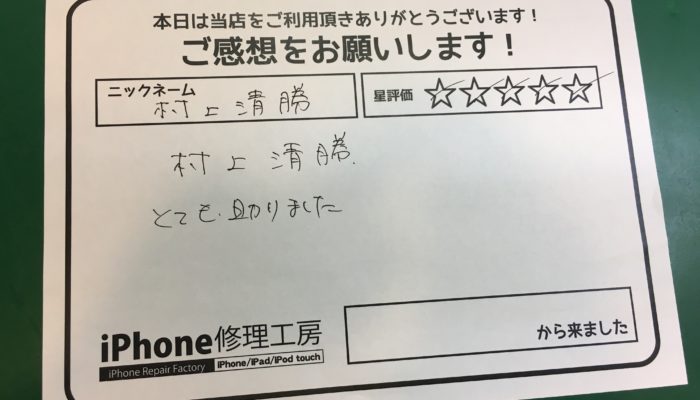 本日は当店をご利用頂きありがとうございます！
ご感想をお願いします！
ニックネーム
村上清勝
星評価 ☆☆☆☆☆
村上清勝
とても助かりました
iPhone修理工房
iPhone Repair Factory iPhone/iPad/iPod touch
から来ました